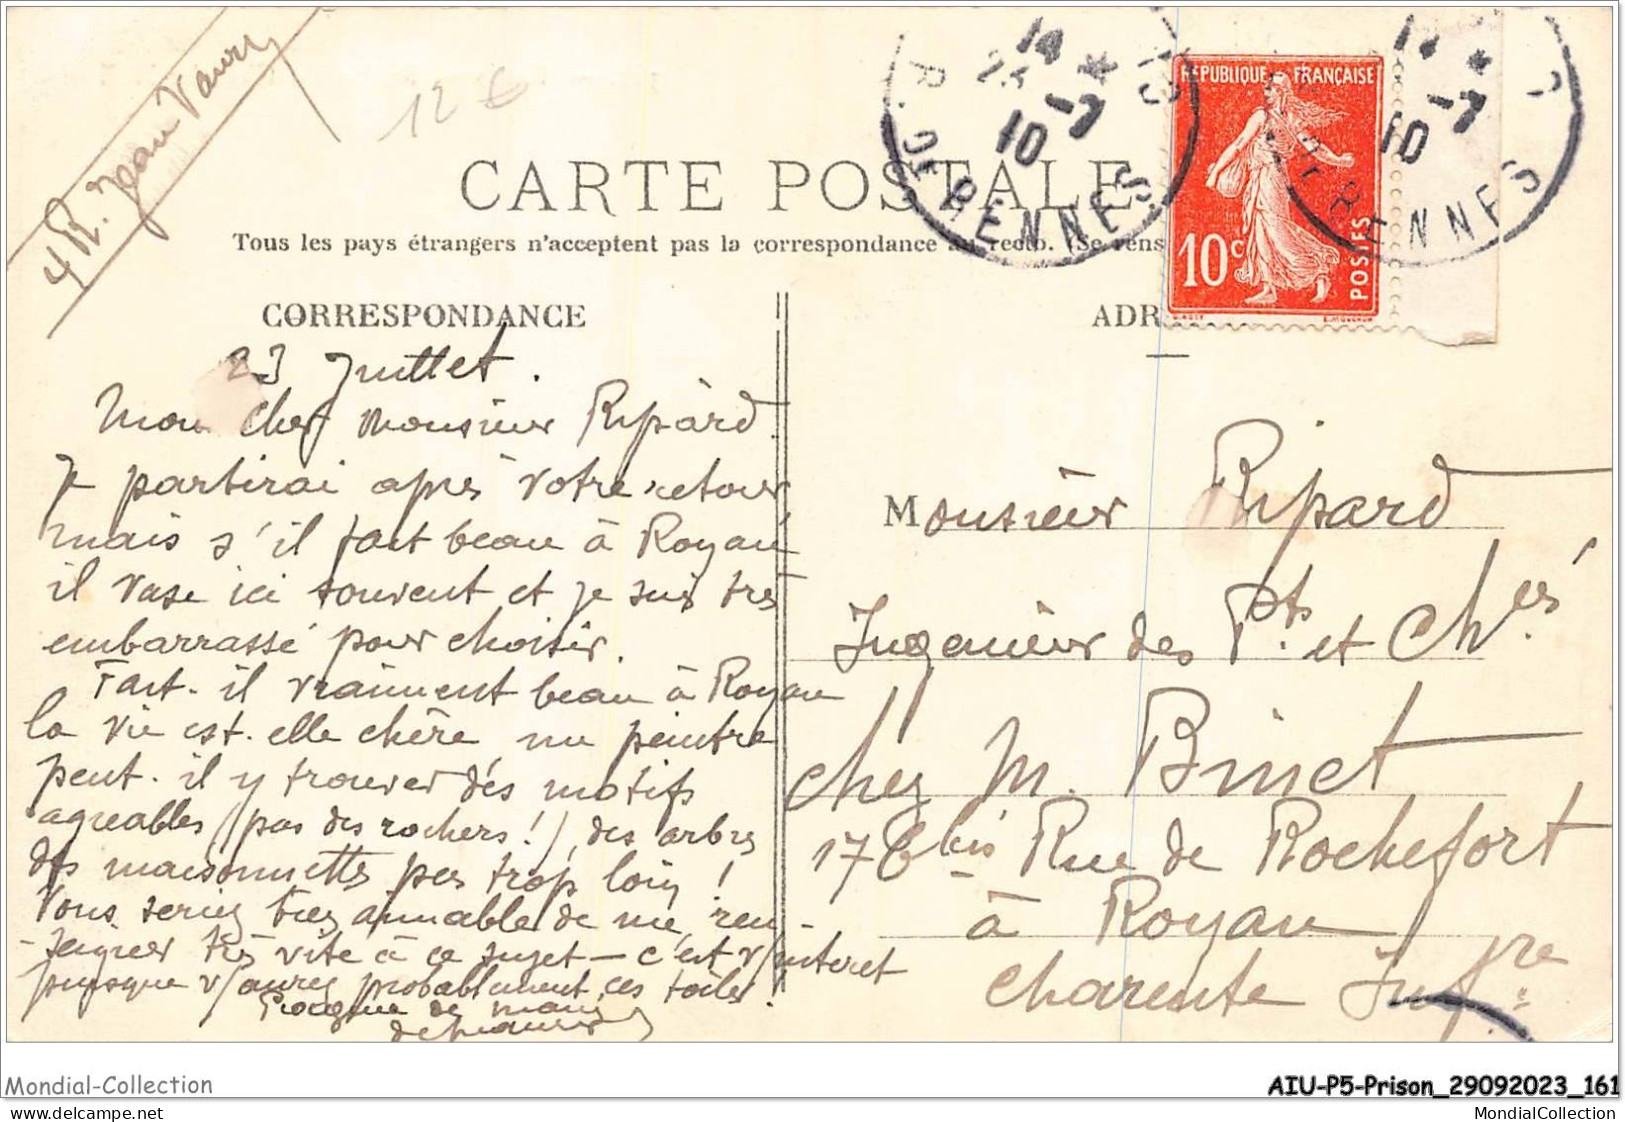 4 R. Jean Vaury
12 €
CARTE POSTALE
Tous les pays étrangers n'acceptent pas la correspondance au recto. (Se rens
CORRESPONDANCE
23 Juillet.
Mon Cher Monsieur Ripard
Je partirai après votre retour
mais s'il fait beau à Royan
il vase ici souvent et je suis très
embarrassé pour choisir.
Fait-il vraiment beau à Royan
la vie est-elle chère, un peintre
peut-il y trouver des motifs
agréables (pas des rochers!), des arbres
des maisonnettes pas trop loin!
Vous seriez bien aimable de me ren
-seigner très vite à ce sujet — c'est v/interet
puisque v/aurez probablement ces toiles.
de mains
R. DE RENNES
14 *
23 -7
10
REPUBLIQUE FRANÇAISE
10c
POSTES
14 *
-7
10
R. DE RENNES
ADR
Monsieur Ripard
Ingenieur des Pts et Chés
chez M. Binet
17 bis Rue de Rochefort
à Royan
Charente Infre
Mondial-Collection
AIU-P5-Prison_29092023_161
MondialCollection